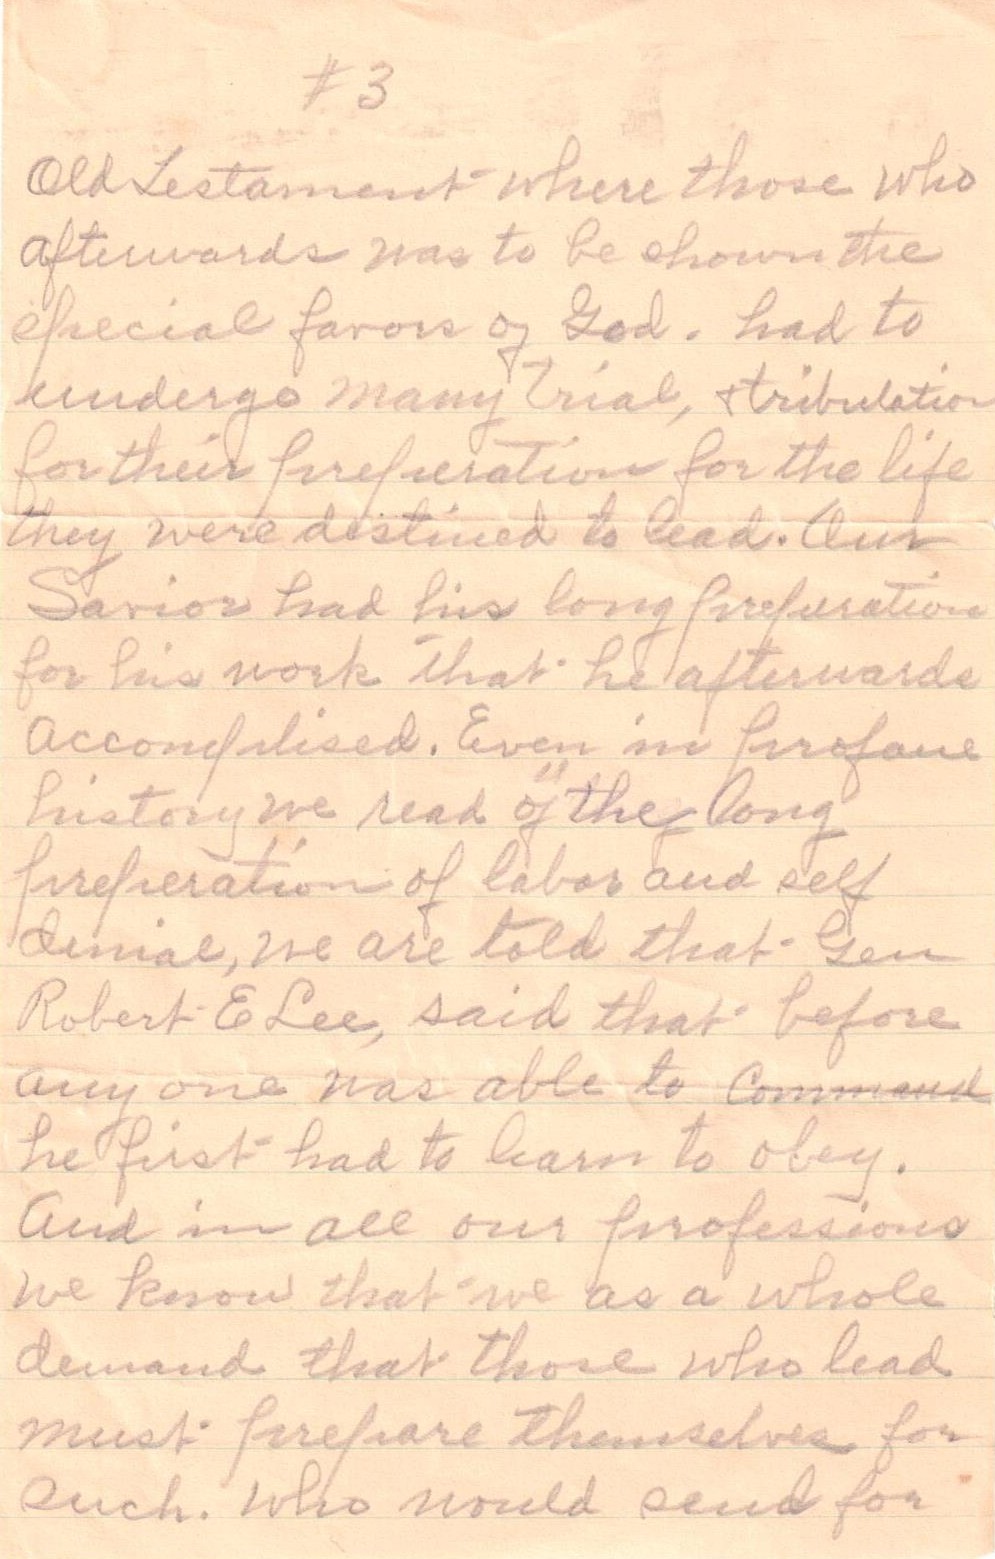 #3
Old Testament where those who
afterwards was to be shown the
special favors of God. had to
undergo many trial, & tribulation
for their preperation for the life
they were destined to lead. Our
Savior had his long preperation
for his work that he afterwards
accomplised. Even in profane
history we read of "the long
preperation of labor and self
denial, we are told that Gen
Robert E Lee, said that before
any one was able to Command
he first had to learn to obey.
And in all our professions
we know that we as a whole
demand that those who lead
must prepare themselves for
such. Who would send for